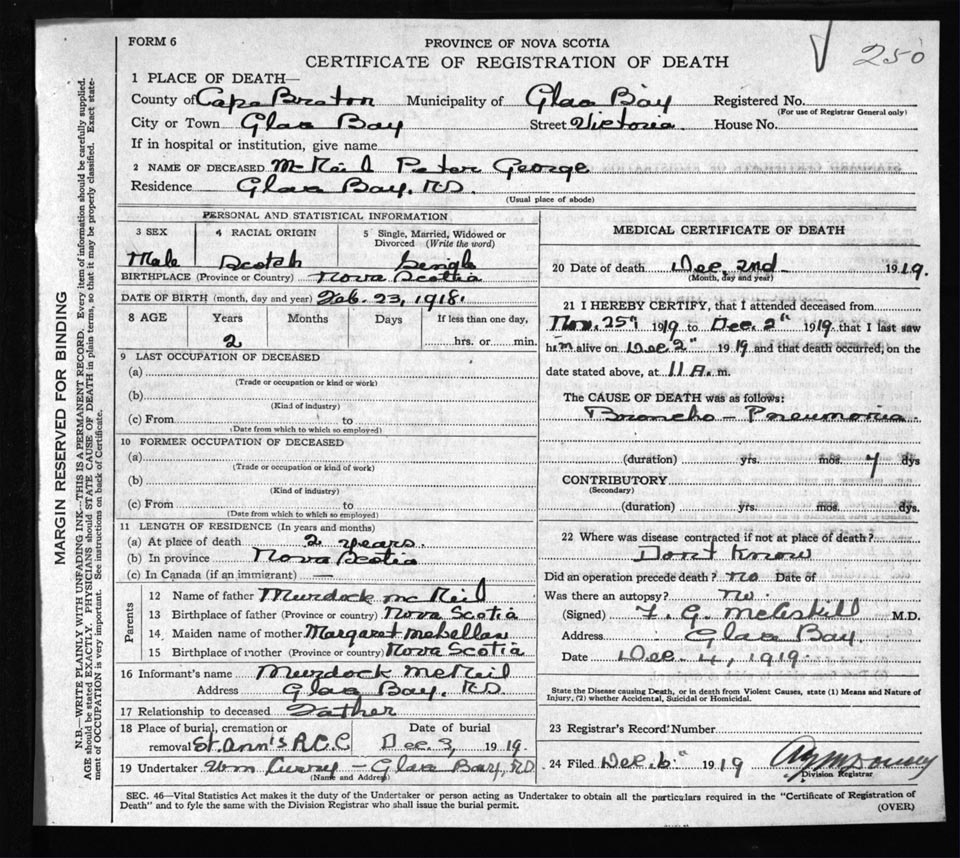 FORM 6
250
PROVINCE OF NOVA SCOTIA
CERTIFICATE OF REGISTRATION OF DEATH
1 PLACE OF DEATH—
County of Cape Breton Municipality of Glace Bay Registered No.
(For use of Registrar General only)
City or Town Glace Bay Street Victoria House No.
If in hospital or institution, give name
2 NAME OF DECEASED McNeil Peter George
Residence Glace Bay, R.D.
(Usual place of abode)
PERSONAL AND STATISTICAL INFORMATION
3 SEX
4 RACIAL ORIGIN
5 Single, Married, Widowed or Divorced (Write the word)
Male Scotch Single
BIRTHPLACE (Province or Country) Nova Scotia
DATE OF BIRTH (month, day and year) Feb. 23, 1918.
8 AGE Years Months Days If less than one day,
2 hrs. or min.
9 LAST OCCUPATION OF DECEASED
(a)
(Trade or occupation or kind or work)
(b)
(Kind of industry)
(c) From to
(Date from which to which so employed)
10 FORMER OCCUPATION OF DECEASED
(a)
(Trade or occupation or kind of work)
(b)
(Kind of industry)
(c) From to
(Date from which to which so employed)
11 LENGTH OF RESIDENCE (In years and months)
(a) At place of death 2 years.
(b) In province Nova Scotia
(c) In Canada (if an immigrant) —
Parents
12 Name of father Murdock McNeil
13 Birthplace of father (Province or country) Nova Scotia
14 Maiden name of mother Margaret McLellan
15 Birthplace of mother (Province or country) Nova Scotia
16 Informant's name Murdock McNeil
Address Glace Bay, R.D.
17 Relationship to deceased Father
18 Place of burial, cremation or removal St. Ann's R.C.C
Date of burial
Dec 3, 1919.
19 Undertaker Wm Curry — Glace Bay, R.D.
(Name and Address)
MEDICAL CERTIFICATE OF DEATH
20 Date of death Dec, 2nd 1919.
(Month, day and year)
21 I HEREBY CERTIFY, that I attended deceased from
Nov. 25" 1919 to Dec. 2" 1919 that I last saw
him alive on Dec 2" 1919 and that death occurred, on the
date stated above, at 11 A. m.
The CAUSE OF DEATH was as follows:
Broncho – Pneumonia
(duration) yrs. mos. 7 dys
CONTRIBUTORY
(Secondary)
(duration) yrs. mos. dys.
22 Where was disease contracted if not at place of death?
Don't Know
Did an operation precede death? no Date of
Was there an autopsy? no.
(Signed) F. G. M.D.
Address Glace Bay.
Date Dec. 4, 1919.
State the Disease causing Death, or in death from Violent Causes, state (1) Means and Nature of
Injury, (2) whether Accidental, Suicidal or Homicidal.
23 Registrar's Record Number
24 Filed Dec. 6" 1919
Division Registrar
SEC. 46—Vital Statistics Act makes it the duty of the Undertaker or person acting as Undertaker to obtain all the particulars required in the "Certificate of Registration of
Death" and to fyle the same with the Division Registrar who shall issue the burial permit.
(OVER)
MARGIN RESERVED FOR BINDING
N.B.—WRITE PLAINLY WITH UNFADING INK—THIS IS A PERMANENT RECORD. Every item of information should be carefully supplied.
AGE should be stated EXACTLY. PHYSICIANS should STATE CAUSE OF DEATH in plain terms, so that it may be properly classified. Exact state-
ment of OCCUPATION is very important. See instructions on back of Certificate.